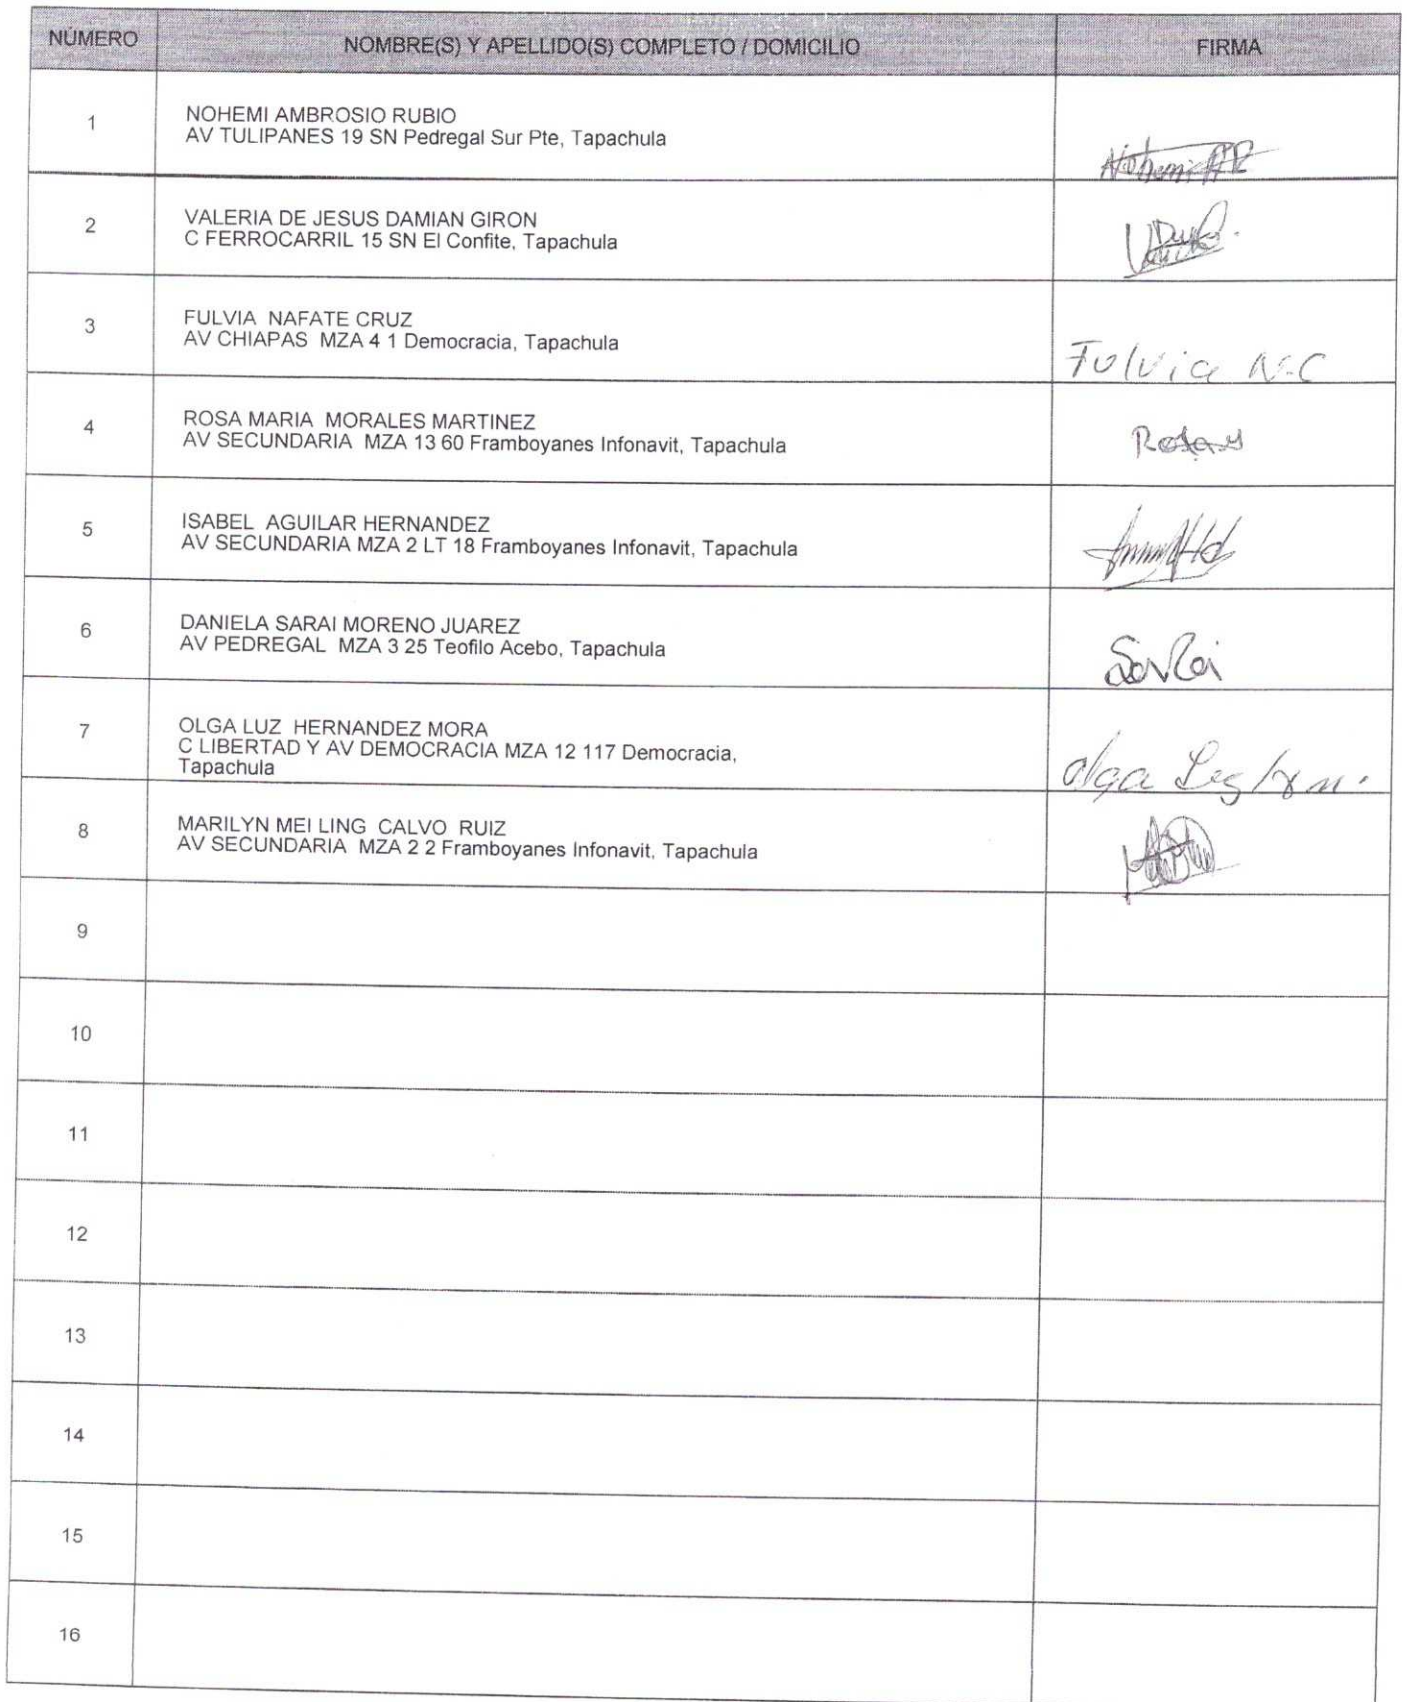 NÚMERO NOMBRE(S) Y APELLIDO(S) COMPLETO / DOMICILIO FIRMA
1 NOHEMI AMBROSIO RUBIO
AV TULIPANES 19 SN Pedregal Sur Pte, Tapachula
Nohemi AR
2 VALERIA DE JESUS DAMIAN GIRON
C FERROCARRIL 15 SN El Confite, Tapachula
3 FULVIA NAFATE CRUZ
AV CHIAPAS MZA 4 1 Democracia, Tapachula
Fulvia N.C
4 ROSA MARIA MORALES MARTINEZ
AV SECUNDARIA MZA 13 60 Framboyanes Infonavit, Tapachula
5 ISABEL AGUILAR HERNANDEZ
AV SECUNDARIA MZA 2 LT 18 Framboyanes Infonavit, Tapachula
6 DANIELA SARAI MORENO JUAREZ
AV PEDREGAL MZA 3 25 Teofilo Acebo, Tapachula
7 OLGA LUZ HERNANDEZ MORA
C LIBERTAD Y AV DEMOCRACIA MZA 12 117 Democracia,
Tapachula
Olga
8 MARILYN MEI LING CALVO RUIZ
AV SECUNDARIA MZA 2 2 Framboyanes Infonavit, Tapachula
9
10
11
12
13
14
15
16